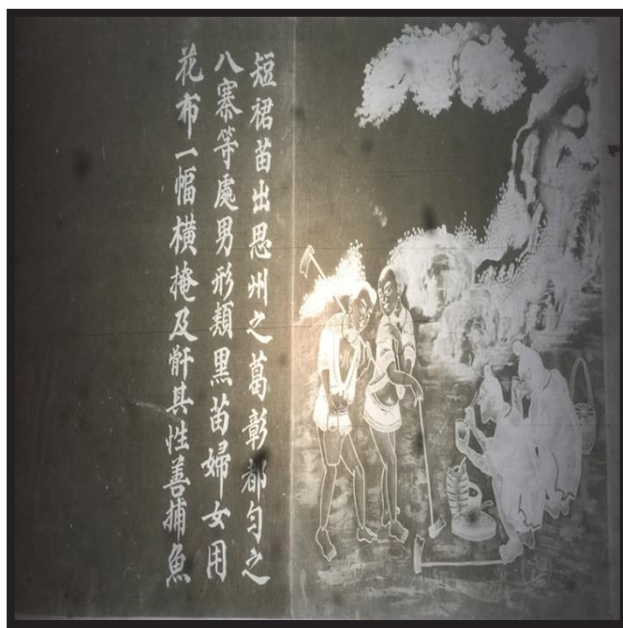 短裙苗出思州之葛彰都匀之
八寨等處男形類黑苗婦女用
花布一幅橫掩及骭其性善捕魚